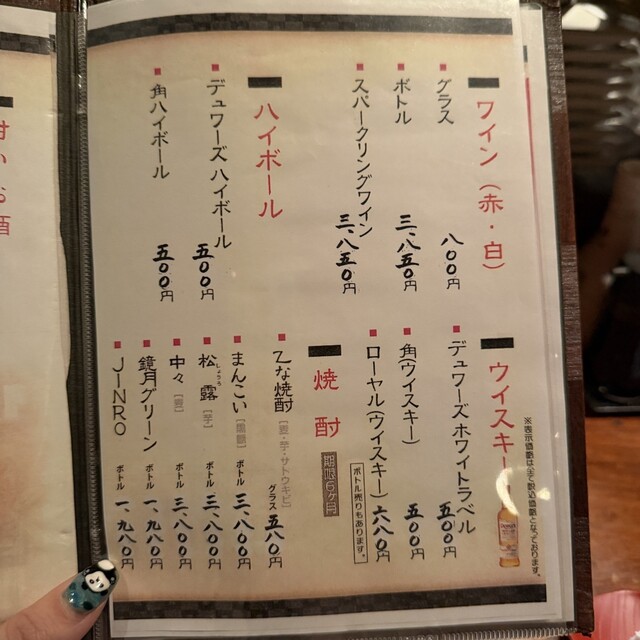 ワイン（赤・白）
グラス 八〇〇円
ボトル 三、八五〇円
スパークリングワイン 三、八五〇円
ハイボール
デュワーズハイボール 五〇〇円
角ハイボール 五〇〇円
ウイスキー
デュワーズホワイトラベル 五〇〇円
角(ウイスキー) 五〇〇円
ローヤル(ウイスキー) 六八〇円
ボトル売りもあります。
焼酎
期限6ヶ月
乙な焼酎 [麦・芋・サトウキビ] グラス 五八〇円
まんこい [黒糖] ボトル 三、八〇〇円
松露 しょうろ [芋] ボトル 三、八〇〇円
中々 [麦] ボトル 三、八〇〇円
鏡月グリーン ボトル 一、九八〇円
JINRO ボトル 一、九八〇円
※表示価額は全て税込価額となっております。
お酒